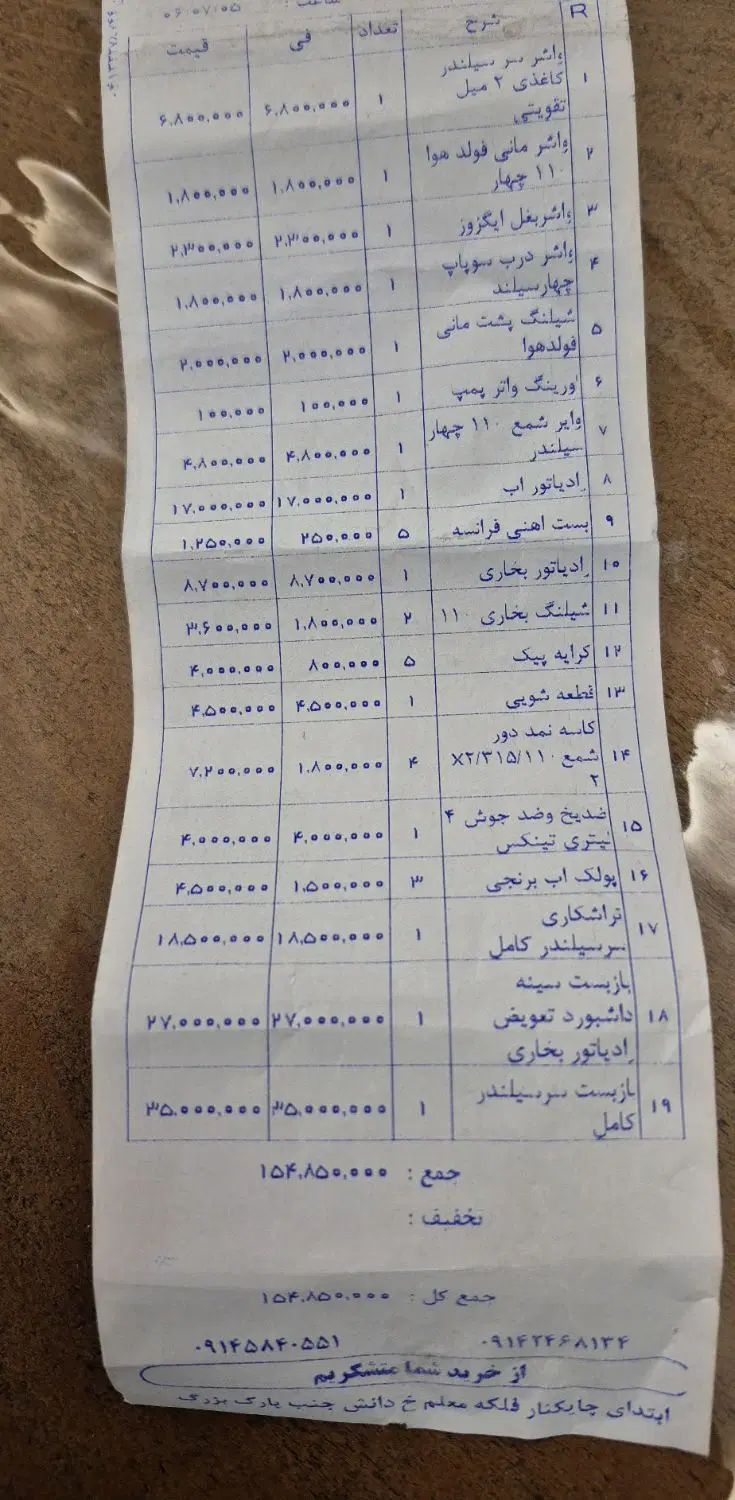 ۰۶:۰۷:۰۵
R شرح تعداد فی قیمت
۱ واشر سر سیلندر کاغذی ۲ میل تقویتی ۱ ۶,۸۰۰,۰۰۰ ۶,۸۰۰,۰۰۰
۲ واشر مانی فولد هوا ۱۱۰ چهار ۱ ۱,۸۰۰,۰۰۰ ۱,۸۰۰,۰۰۰
۳ واشربغل ایگزوز ۱ ۲,۳۰۰,۰۰۰ ۲,۳۰۰,۰۰۰
۴ واشر درب سوپاپ چهارسیلند ۱ ۱,۸۰۰,۰۰۰ ۱,۸۰۰,۰۰۰
۵ شیلنگ پشت مانی فولدهوا ۱ ۲,۰۰۰,۰۰۰ ۲,۰۰۰,۰۰۰
۶ اورینگ واتر پمپ ۱ ۱۰۰,۰۰۰ ۱۰۰,۰۰۰
۷ وایر شمع ۱۱۰ چهار سیلندر ۱ ۴,۸۰۰,۰۰۰ ۴,۸۰۰,۰۰۰
۸ رادیاتور اب ۱ ۱۷,۰۰۰,۰۰۰ ۱۷,۰۰۰,۰۰۰
۹ بست اهنی فرانسه ۵ ۲۵۰,۰۰۰ ۱,۲۵۰,۰۰۰
۱۰ رادیاتور بخاری ۱ ۸,۷۰۰,۰۰۰ ۸,۷۰۰,۰۰۰
۱۱ شیلنگ بخاری ۱۱۰ ۲ ۱,۸۰۰,۰۰۰ ۳,۶۰۰,۰۰۰
۱۲ کرایه پیک ۵ ۸۰۰,۰۰۰ ۴,۰۰۰,۰۰۰
۱۳ قطعه شویی ۱ ۴,۵۰۰,۰۰۰ ۴,۵۰۰,۰۰۰
۱۴ کاسه نمد دور شمع ۱۱۰/X۲/۳۱۵ ۲ ۴ ۱,۸۰۰,۰۰۰ ۷,۲۰۰,۰۰۰
۱۵ ضدیخ وضد جوش ۴ لیتری تینکس ۱ ۴,۰۰۰,۰۰۰ ۴,۰۰۰,۰۰۰
۱۶ پولک اب برنجی ۳ ۱,۵۰۰,۰۰۰ ۴,۵۰۰,۰۰۰
۱۷ تراشکاری سرسیلندر کامل ۱ ۱۸,۵۰۰,۰۰۰ ۱۸,۵۰۰,۰۰۰
۱۸ بازبست سینه داشبورد تعویض رادیاتور بخاری ۱ ۲۷,۰۰۰,۰۰۰ ۲۷,۰۰۰,۰۰۰
۱۹ بازبست سرسیلندر کامل ۱ ۳۵,۰۰۰,۰۰۰ ۳۵,۰۰۰,۰۰۰
جمع : ۱۵۴,۸۵۰,۰۰۰
تخفیف :
جمع کل : ۱۵۴,۸۵۰,۰۰۰
۰۹۱۴۲۴۶۸۱۳۴ ۰۹۱۴۵۸۴۰۵۵۱
از خرید شما متشکریم
ابتدای چایکنار فلکه معلم خ دانش جنب پارک بزرگ